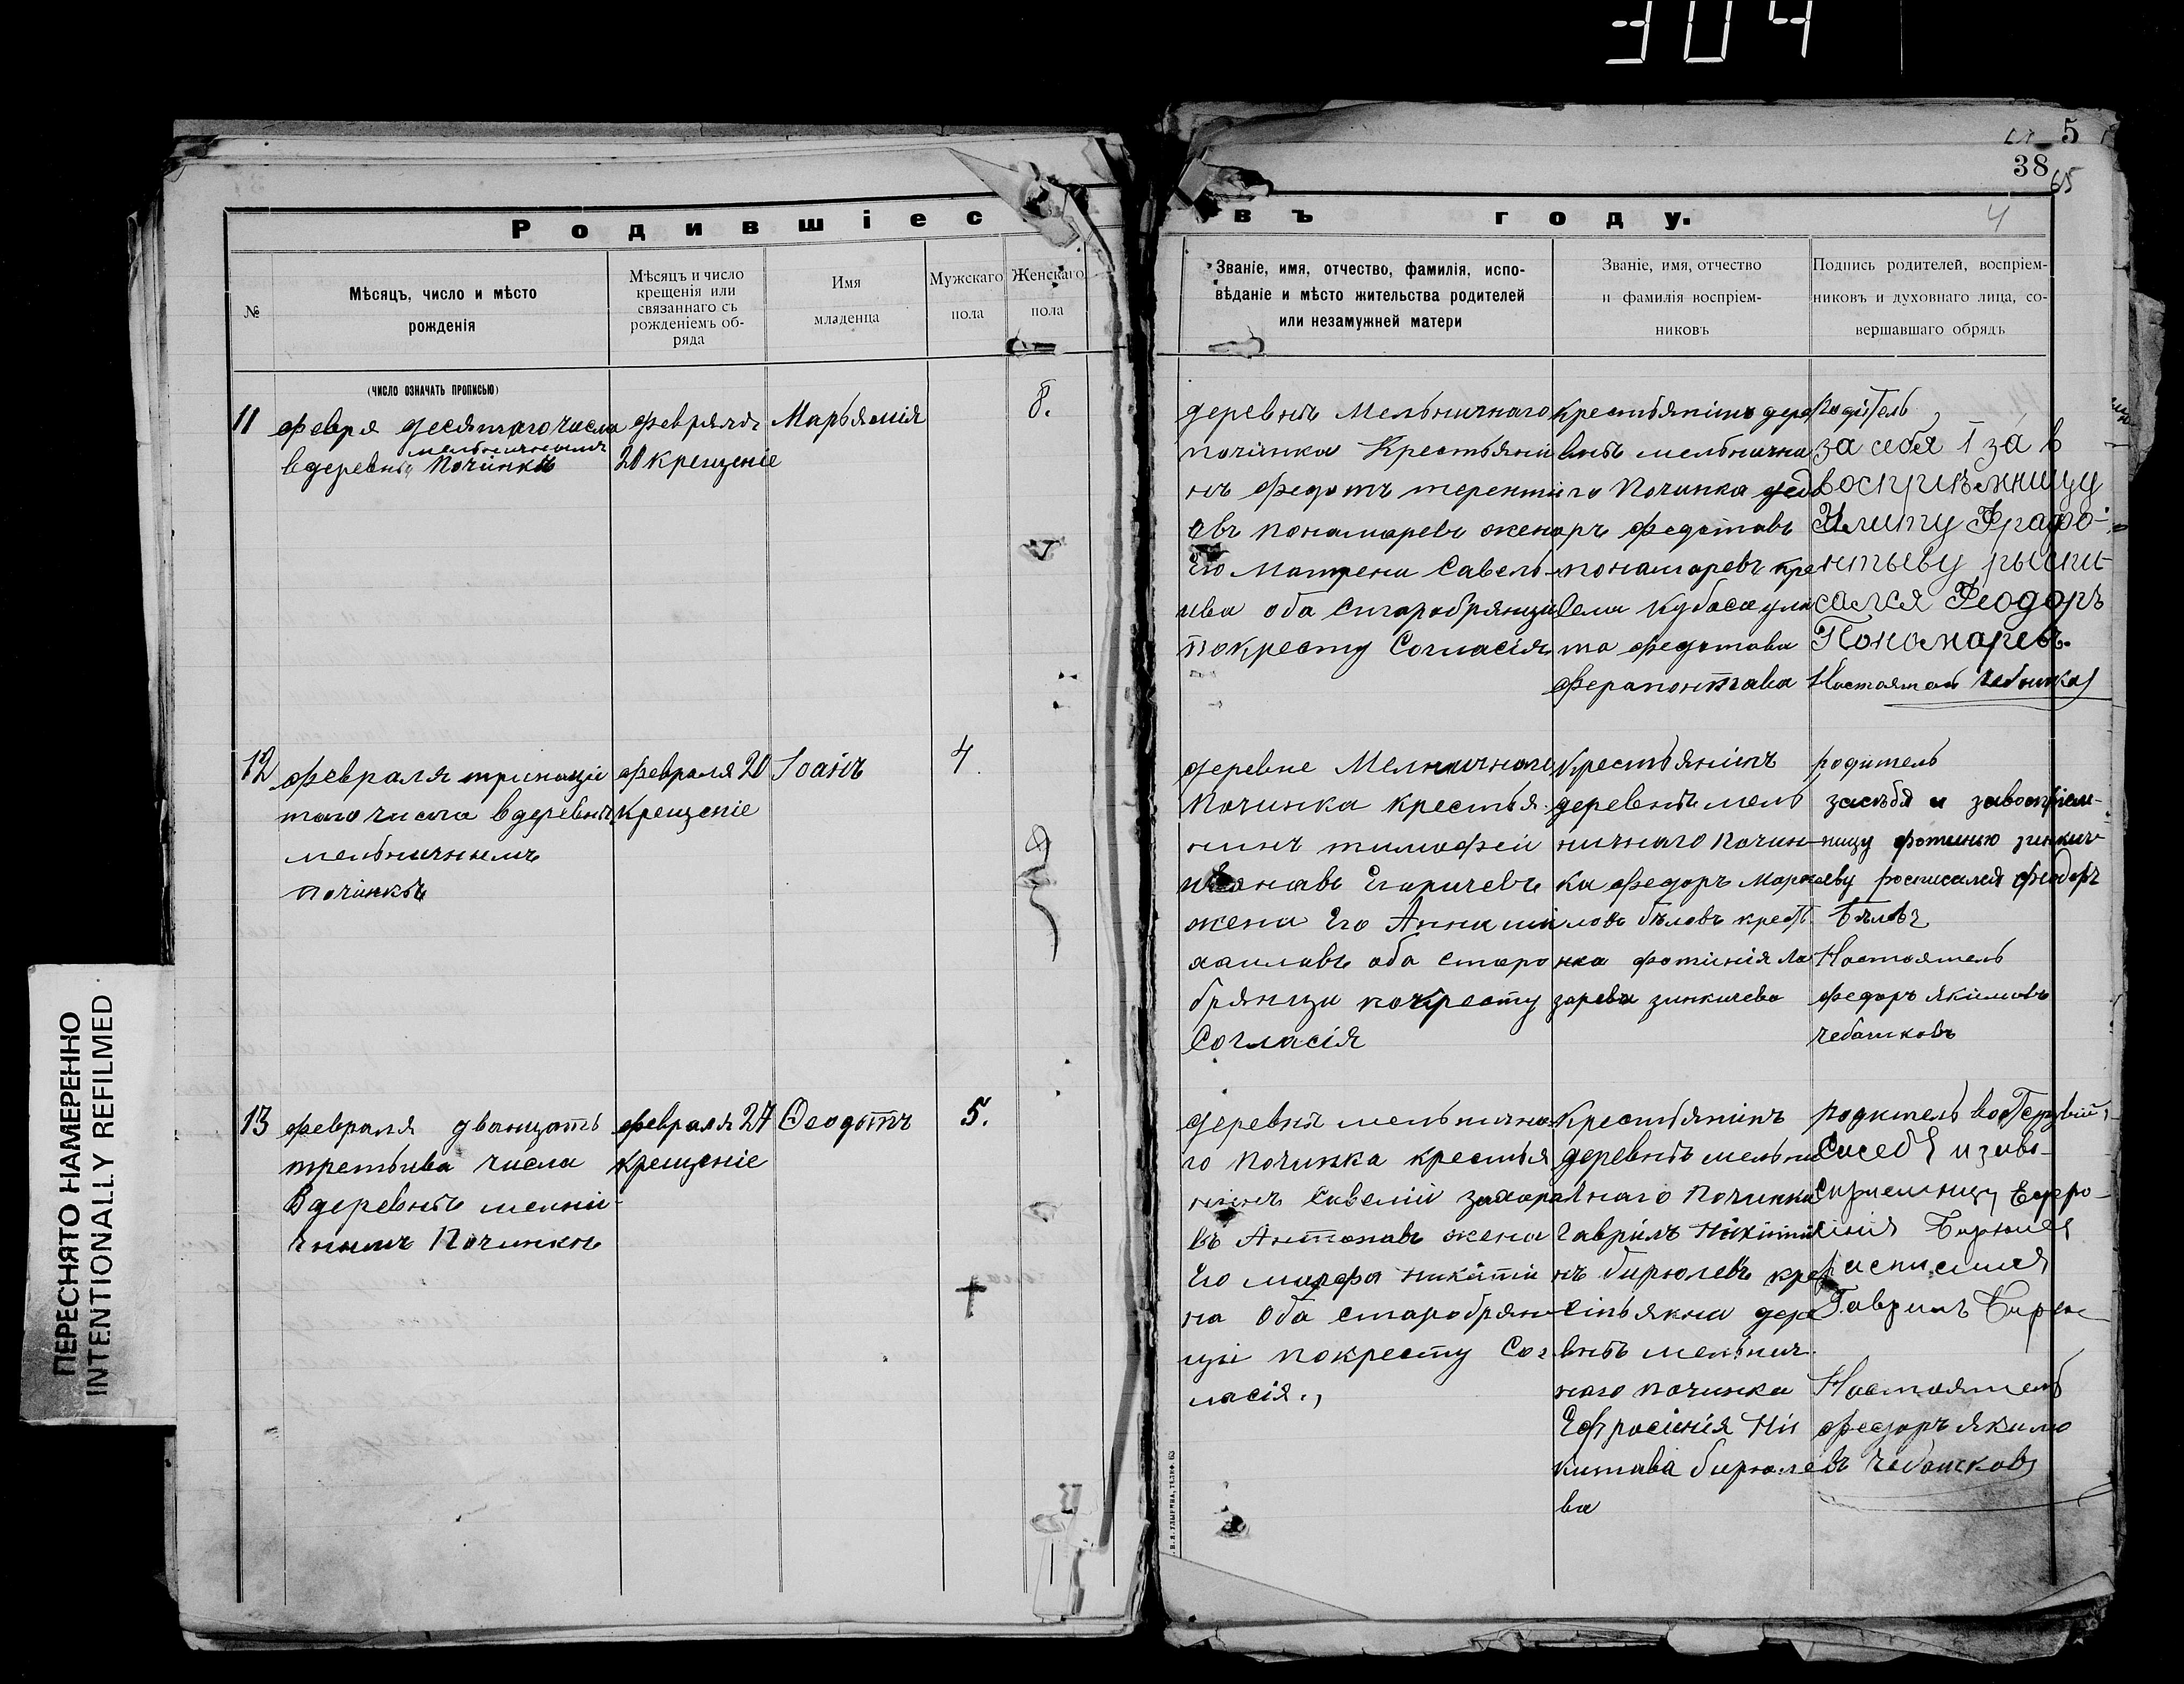 304
5
38
65
4
Родившіес въ году.
№
Мѣсяцъ, число и мѣсто
рожденія
Мѣсяцъ и число
крещенія или
связаннаго съ
рожденіемъ об-
ряда
Имя
младенца
Мужскаго
пола
Женскаго
пола
Званіе, имя, отчество, фамилія, испо-
вѣданіе и мѣсто жительства родителей
или незамужней матери
Званіе, имя, отчество
и фамилія воспріем-
никовъ
Подпись родителей, воспріем-
никовъ и духовнаго лица, со-
вершавшаго обрядъ
(число означать прописью)
11
февря десятаго числа
мельничнымъ
вдеревнѣ Починкѣ
февряля
20 крещеніе
Марьямія
8.
деревнѣ Мельничнаго
починка Крестьяни
нъ федотъ терентьи
овъ понамаревъ жена
Его Матрена Савель-
ива оба старобрянци
покресту Согласія
крестьянинъ дере
внѣ мельнична
го Починка федо
ръ федотавъ
понамаревъ кре
Села кубаса ули
та федотава
ферапонтава
Родитель
за себя і за в
воспріѣмницу
Улиту Фрапо-
нтьеву росписы
сался Феодоръ
Пономаревъ.
Настоятель Чебышков
12
февраля тринаци
таго числа вдеревнѣ
мельничнымъ
починкѣ
февраля 20
Крещеніе
Іоанъ
4.
деревне Мелничнаго
Починка крестья
нинъ тимофеи
Егоричевъ
жена Его Анна ми
хаилавъ оба старо
брянци покресту
Согласія
Крестьянінъ
деревнѣ мель
ничнаго Почин-
ка федоръ Марке
ловъ бѣловъ крест
нка фотинія Ла
зарева зинкичева
родитель
засѣбя и завоспріем-
ницу фотинью зинкич
еву росписался феодоръ
Бѣловъ
Настоятель
федоръ якимовъ
чебашковъ
13
февраля дванцать
третьива числа
Вдеревнѣ мелни-
чнымъ Починкѣ
февраля 27
крещеніе
Ѳеодотъ
5.
деревня мельнична
го починка крестья
нинъ Савелий захоро
въ Антонавъ жена
Его марфа никити
на Оба старобрян-
цы покресту Сог
ласія.,
Крестьянинъ
деревнѣ мельни
чнаго Починка
Гаврилъ Никити
нъ бирюлевъ кре
стьянка дере
внѣ мельнич
наго починка
Ефросінія Ни
китава бирюле
ва
родитель
засебѧ изаво-
спрiемницу Ефро
сінія Бирюлев
расписался
Гаврилъ Бирюл
Настоятель
федоръ якимо
въ Чебашковъ
ПЕРЕСНЯТО НАМЕРЕННО
INTENTIONALLY REFILMED